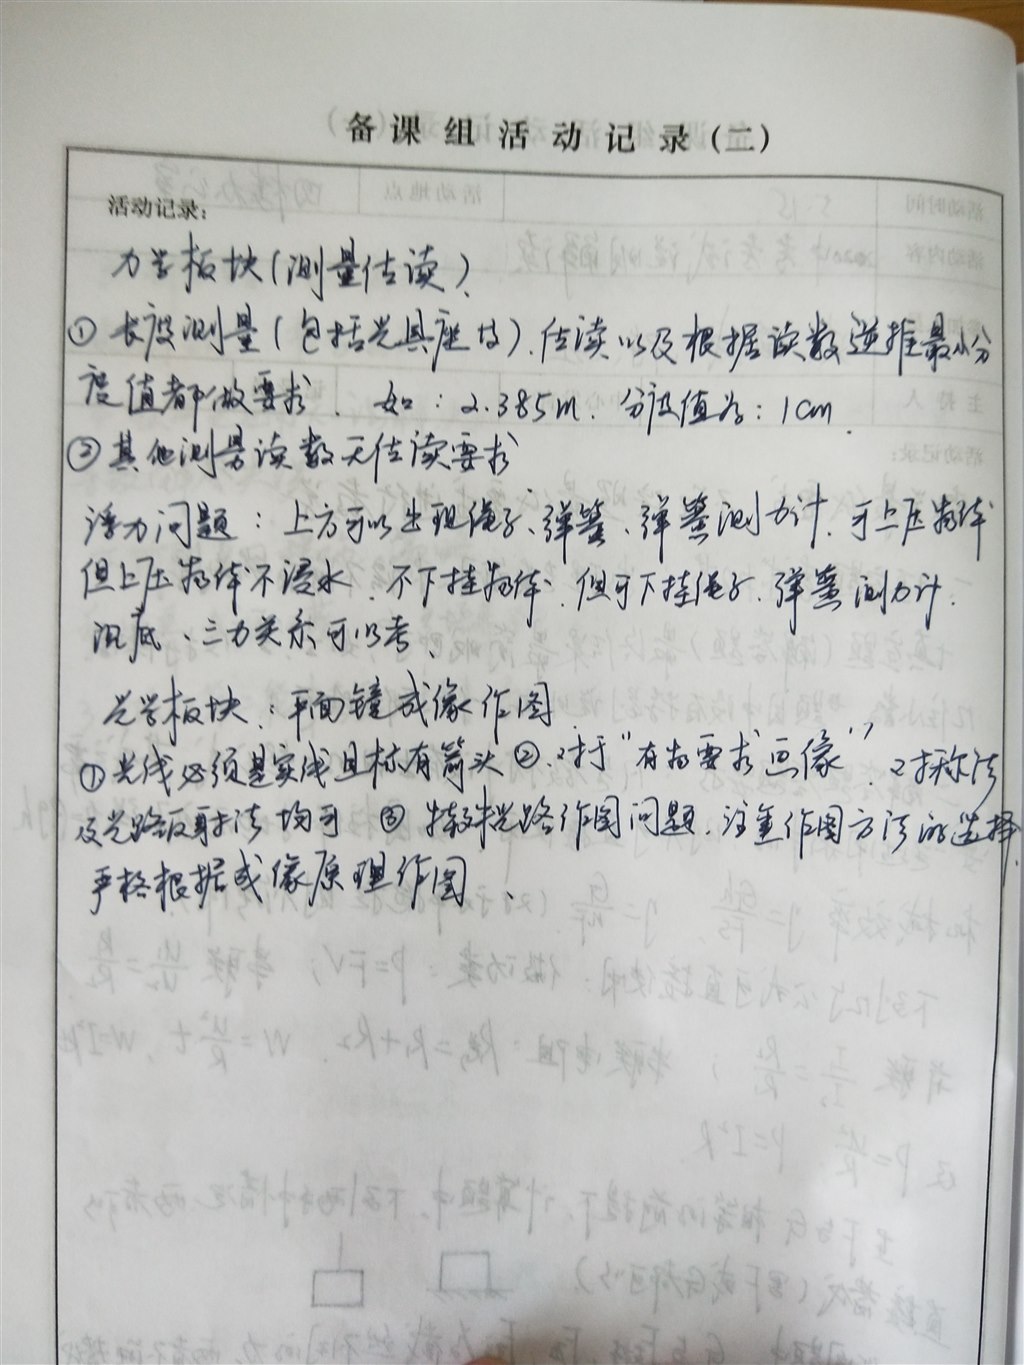 备课组活动记录(二)
活动记录:
力学板块(测量估读).
① 长度测量(包括光具座技).估读以及根据读数逆推最小分
度值都做要求. 如:2.385m.分度值为:1cm.
② 其他测量读数无估读要求
浮力问题:上方可以出现绳子、弹簧、弹簧测力计.可上压物体
但上压物体不浸水.不下挂物体.但可下挂绳子.弹簧测力计.
沉底、三力关系可以考.
光学板块:平面镜成像作图.
①光线必须是实线且标有箭头 ②.对于"有物要求画像".对称法
及光路反射法均可 ③ 特殊光路作图问题.注重作图方法的选择.
严格根据成像原理作图.